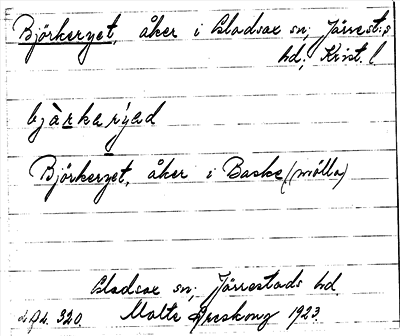 Björkeryet, åker i Gladsax sn; Järrest:s
hd; Krist. l
bjàrkarýad
Björkeryet, åker i Baske (mölla)
Gladsax sn; Järrestads hd.
Malte Areskoug 1923.
294. 320.